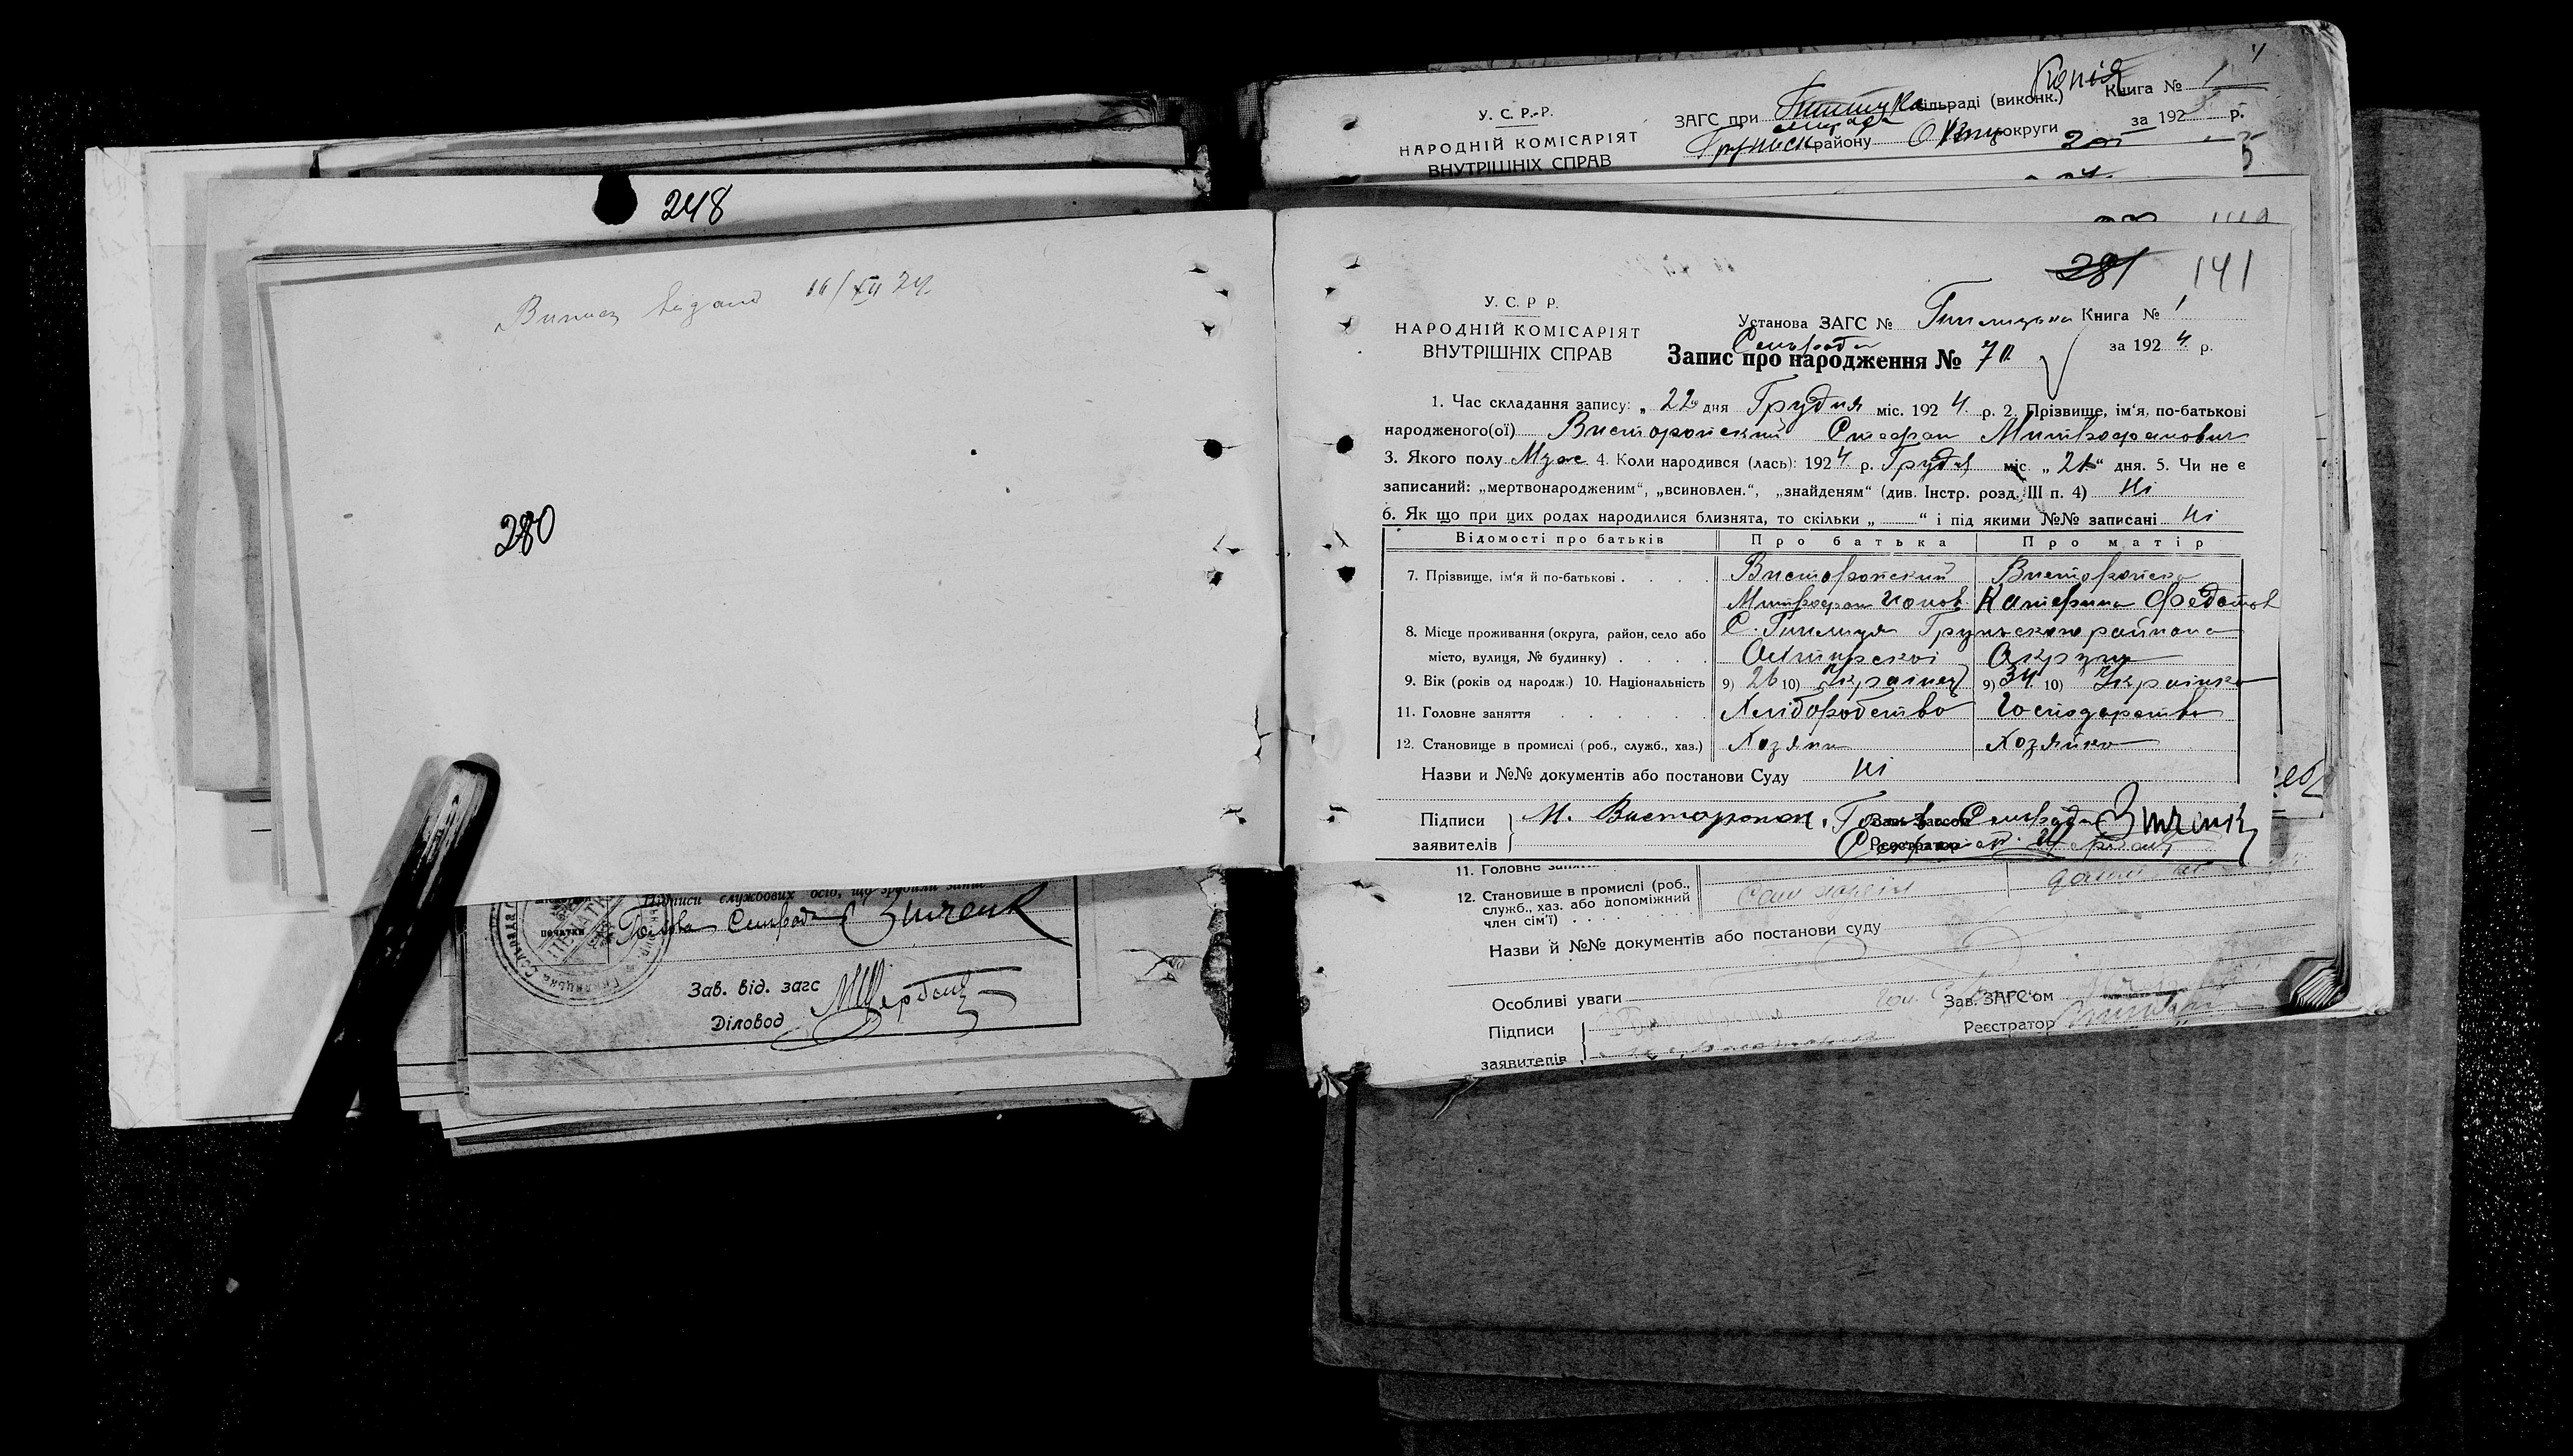 248
Виписъ видано 16/XII 24
280
Підписи службових осіб, що зробили запис
печатки
Голова Сельради Зінченк
Зав. від. загс
Діловод
Копія
У. С. Р.-Р.
НАРОДНІЙ КОМІСАРІЯТ
ВНУТРІШНІХ СПРАВ
ЗАГС при сільраді (виконк.) Книга № 1
Грунськ району округи за 192 р.
281 141
У. С. Р Р.
НАРОДНІЙ КОМІСАРІЯТ
ВНУТРІШНІХ СПРАВ
Установа ЗАГС № Книга № 1
Сельради
Запис про народження № 70 за 1924 р.
1. Час складання запису: „ 22 дня Грудня міс. 1924 р. 2. Прізвище, ім'я, по-батькові
народженого(ої) Висторопский Стефан Митрофанович
3. Якого полу Муж. 4. Коли народився (лась): 1924 р. Грудня міс. „ 21 “ дня. 5. Чи не є
записаний: „мертвонародженим“, „всиновлен.“, „знайденям“ (див. Інстр. розд. III п. 4) Ні
6. Як що при цих родах народилися близнята, то скільки „ “ і під якими №№ записані Ні
Відомості про батьків Про батька Про матір
7. Прізвище, ім'я й по-батькові Висторопский Висторопска
Митрофан Ионов. Катерина Федотов
8. Місце проживання (округа, район, село або С. Гнилиця Груньского района
місто, вулиця, № будинку) Охтирскоі Округи
9. Вік (років од народж.) 10. Національність 9) 26 10) Украінец 9) 34 10) Украінка
11. Головне заняття Хлібородство Господарство
12. Становище в промислі (роб., служб., хаз.) Хозяин Хозяйка
Назви и №№ документів або постанови Суду Ні
Підписи М. Висторопск. Голова Сельради Зінченк
заявителів Реєстратор
11. Головне заняття
12. Становище в промислі (роб.,
служб., хаз. або допоміжний
член сім'ї)
Назви й №№ документів або постанови суду
Особливі уваги
Зав. ЗАГС'ом
Підписи
Реєстратор
заявителів